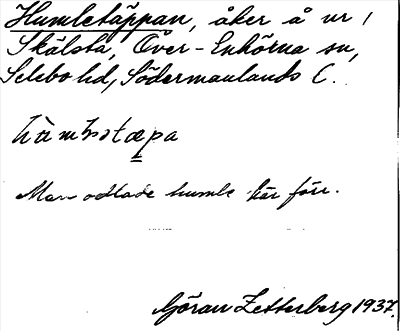 Humletäppan, åker å nr 1
Skälsta, Över-Enhörna sn,
Selebo hd, Södermanlands l.
Man odlade humle här förr.
Göran Zetterberg 1937.